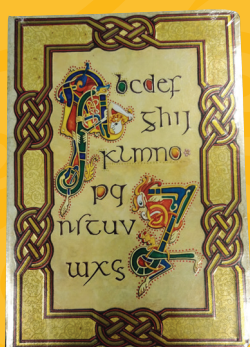 Abcdef
ghij
klmno
pq
rstuv
wxyz